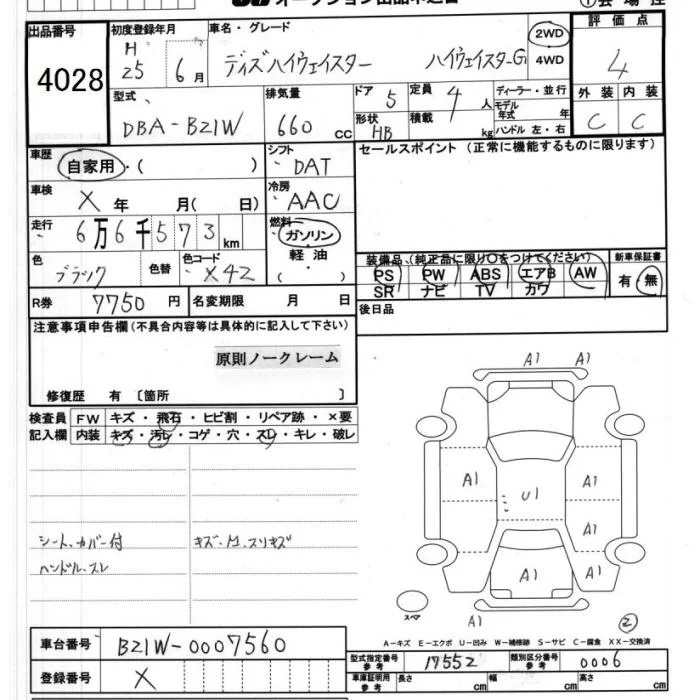 オークション出品申込書
①会場控
出品番号 4028
初度登録年月 H 25 6月
車名・グレード ディズハイウェイスター ハイウェイスターG
2WD
4WD
評価点 4
外装 内装
C C
型式 DBA-B21W
排気量 660 cc
ドア 5
形状 HB
定員 4 人
積載 kg
ディーラー・並行
モデル年式 年
ハンドル 左・右
車歴 自家用・( )
シフト DAT
セールスポイント (正常に機能するものに限ります)
車検 X 年 月( 日)
冷房 AAC
走行 6万6千573 km
燃料 ガソリン
軽油
・
色 ブラック 色替
色コード X42
装備品 (純正品に限り○をつけてください)
PS PW ABS エアB AW
SR ナビ TV カワ
新車保証書
有・無
R券 7750 円
名変期限 月 日
後日品
注意事項申告欄(不具合内容等は具体的に記入して下さい)
原則ノークレーム
修復歴 有 〔箇所 〕
検査員記入欄
FW キズ・飛石・ヒビ割・リペア跡・×要
内装 キズ・汚レ・コゲ・穴・スレ・キレ・破レ
シート、カバー付
ハンドル、スレ
A1 A1
A1 A1
U1
A1
A1 A1
A1
スペア
②
A-キズ E-エクボ U-凹み W-補修跡 S-サビ C-腐食 XX-交換済
車台番号 B21W-0007560
登録番号 X
型式指定番号 参考 17552
類別区分番号 参考 0006
車庫証明用 参考 長さ cm 幅 cm 高さ cm